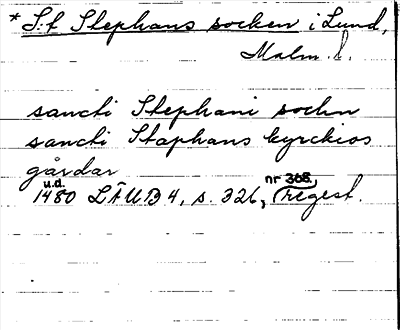 * S:t Stephans socken i Lund,
Malm. l.
sancti Stephani sochn
sancti Staphans kyrckios
gårdar
u.d. nr 368,
1480 LÄUB 4, s. 326, (regest.